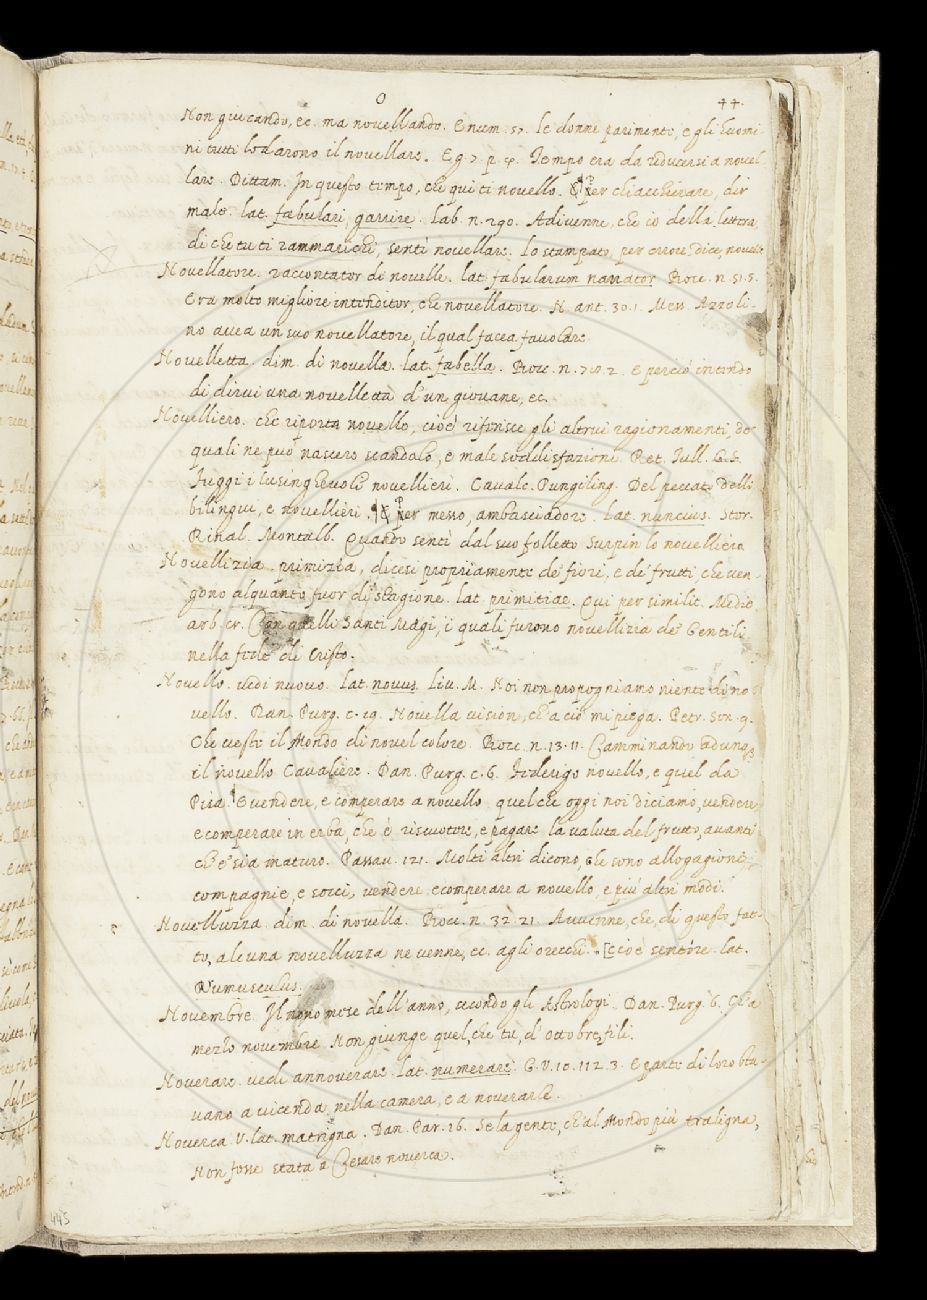 O 44.
Non giucando, ec. ma novellando. E num. 57. le donne parimente, e gli huomi-
ni tutti lodarono il novellare. E g. 7. p. 4. Tempo era da riducersi a novel-
lare. Dittam. In questo tempo, che qui ti novello. Per chiacchierare, dir
male. lat. fabulari, garrire. Lab. n. 290. Adivenne, che io della lettera,
di che tu ti rammarichi, sentì novellare. lo stampato, per errore, dice, novelle
Novellatore. raccontator di novelle. lat. fabularum narrator. Bocc. n. 51. 5.
Era molto migliore intenditor, che novellatore. N. ant. 30. 1. Mess. Azzoli-
no avea un suo novellatore, il qual facea favolare.
Novelletta. dim. di novella. lat. fabella. Bocc. n. 2. E perciò intendo
di dirvi una novelletta d'un giovane, ec.
Novelliero. che riporta novelle, cioè riferisce gli altrui ragionamenti, de'
quali ne può nascere scandalo, e male soddisfazioni. Ret. Tull. G. S.
Fuggi i lusinghevoli novellieri. Cavalc. Pungiling. Del peccato delli
bilingui, e novellieri. Per messo, ambasciadore. Lat. nuncius. Stor.
Rinal. Montalb. Quando sentì dal suo folletto Surpin lo novelliero.
Novellizia. primizia, dicesi propriamente de' fiori, e de' frutti che ven-
gono alquanto fuor di stagione. lat. primitiae. Qui per similit. Medit.
arb. cr. Con quelli Santi Magi, i quali furono novellizia de' Gentili
nella fede di Cristo.
Novello. vedi nuovo. Lat. novus. Liv. M. Noi non propogniamo niente di no-
vello. Dan. Purg. c. 19. Novella vision, ch'a ciò mi piega. Petr. Son. 9.
Che veste il Mondo di novel colore. Bocc. n. 13. 11. Camminando adunque
il novello Cavaliere. Dan. Purg. c. 6. Federigo novello, e quel da
Pisa. E vendere, e comperare a novello, quel che oggi noi diciamo, vendere,
e comperare in erba, che è riscuotere, e pagare la valuta del frutto, avanti
ch'e' sia maturo. Passav. 121. Molti altri dicono, che sono allogagioni
compagnie, e socci, vendere, e comperare a novello, e più altri modi.
Novelluzza. dim. di novella. Bocc. n. 32. 21. Avvenne, che, di questo fat-
to, alcuna novelluzza ne venne, ec. agli orecchi. [Cioè sentire. lat.
Rumusculus.
Novembre. Il nono mese dell'anno, secondo gli Astrologi. Dan. Purg. 6. Ch'a
mezzo novembre Non giunge quel, che tu, d'ottobre, fili.
Noverare. vedi annoverare. lat. numerare. G. V. 10. 112. 3. E parte di loro sta-
vano a vicenda, nella camera, e a noverarle.
Noverca. V. lat. matrigna. Dan. Par. 16. Se la gente, ch'al Mondo più traligna,
Non fosse stata a Cesare noverca.
445